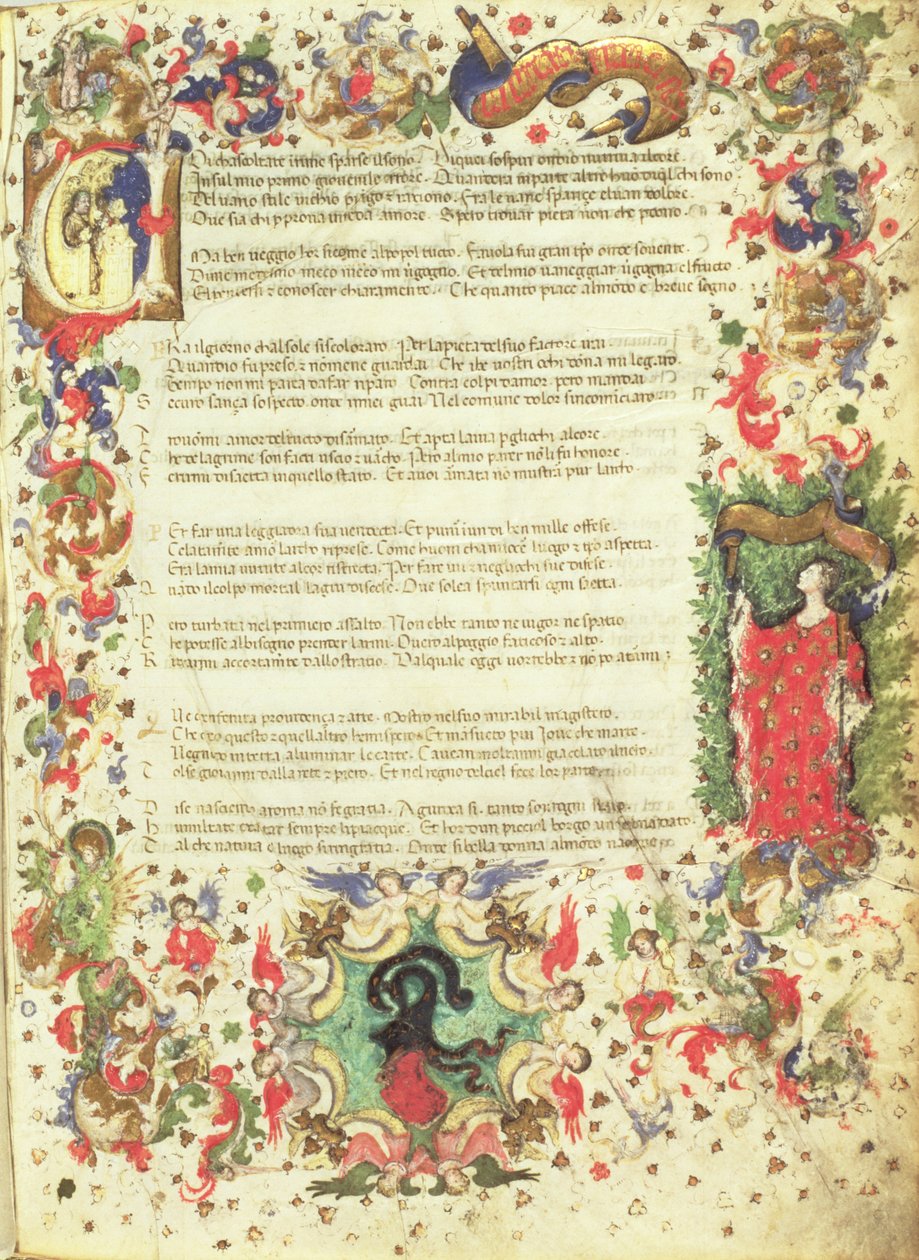 Oi chascoltate irime sparse ilsono · Diquei sospiri ondio nutriua alcore ·
Insulmio primo giouenile errore · Quandera inparte altro huō dīql chi sono
Deluano stile inchio piāgo ⁊ ragiono · Era le uane sperançe eluan dolore ·
Oue sia chi p proua intēda amore · Spero trouar pieta non che pdono ·
Ma ben ueggio hor siccome alpopol tucto · Fauola fui gran tpo onde souente ·
Dime medesmo meco meco mi ūgogno · Et delmio uaneggiar ūgogna elfructo
Elpentersi ⁊ conoscer chiaramente · Che quanto piace almōdo e breue sogno ·
Era ilgiorno chalsole siscoloraro · Per lapieta delsuo factore irai ·
Quandio fu preso ⁊ nō mene guardai · Che ibe uostri ochi dōna mi legaro ·
Tempo non mi parea dafar riparo · Contra colpi damor pero mandai
Securo sança sospecto onde imiei guai Nel comune dolor sincominciaro
Trouōmi amor deltucto disarmato · Et aperta lauia p gliochi alcore
Che delagrime son facti uscio ⁊ uarcho · Pero almio parer nō li fu honore
Ferirmi disaetta inquello stato · Et auoi armata nō mustrar pur larcho ·
Per far una leggiadra sua uendecta · Et punir īun di ben mille offese ·
Celatamēte amor larcho riprese · Come huom chanocer luogo ⁊ tpo aspecta ·
Era lamia uirtute alcor ristrecta · Per fare iui ⁊ negliochi sue difese ·
Quādo ilcolpo mortal lagiu discese · Oue solea spuntarsi ogni saetta ·
Pero turbata nel primiero assalto · Non ebbe tanto ne uigor ne spatio
Che potesse albisogno prender larmi · Ouero alpoggio faticoso ⁊ alto ·
Ritrarmi accortamēte dallo stratio · Dalquale oggi uorrebbe ⁊ nō po atarmi
Que chenfinita prouidença ⁊ arte · Mostro nelsuo mirabil magistero ·
Che crio questo ⁊ quellaltro hemispero · Et māsueto piu Ioue che marte ·
Vegnēdo in terra alluminar le carte · Cauean moltanni gia celato iluero ·
Tolse giouanni dalla rete ⁊ piero · Et nel regno delciel fece lor parte ·
Di se nascendo aroma nō fe gratia · A giudea si · tanto sourogni stato ·
Humiltate exaltar sempre lipiacque · Et hor dun picciol borgo un sol ma dato ·
Tal che natura elluogo siringratia · Onde sibella donna almōdo nacque